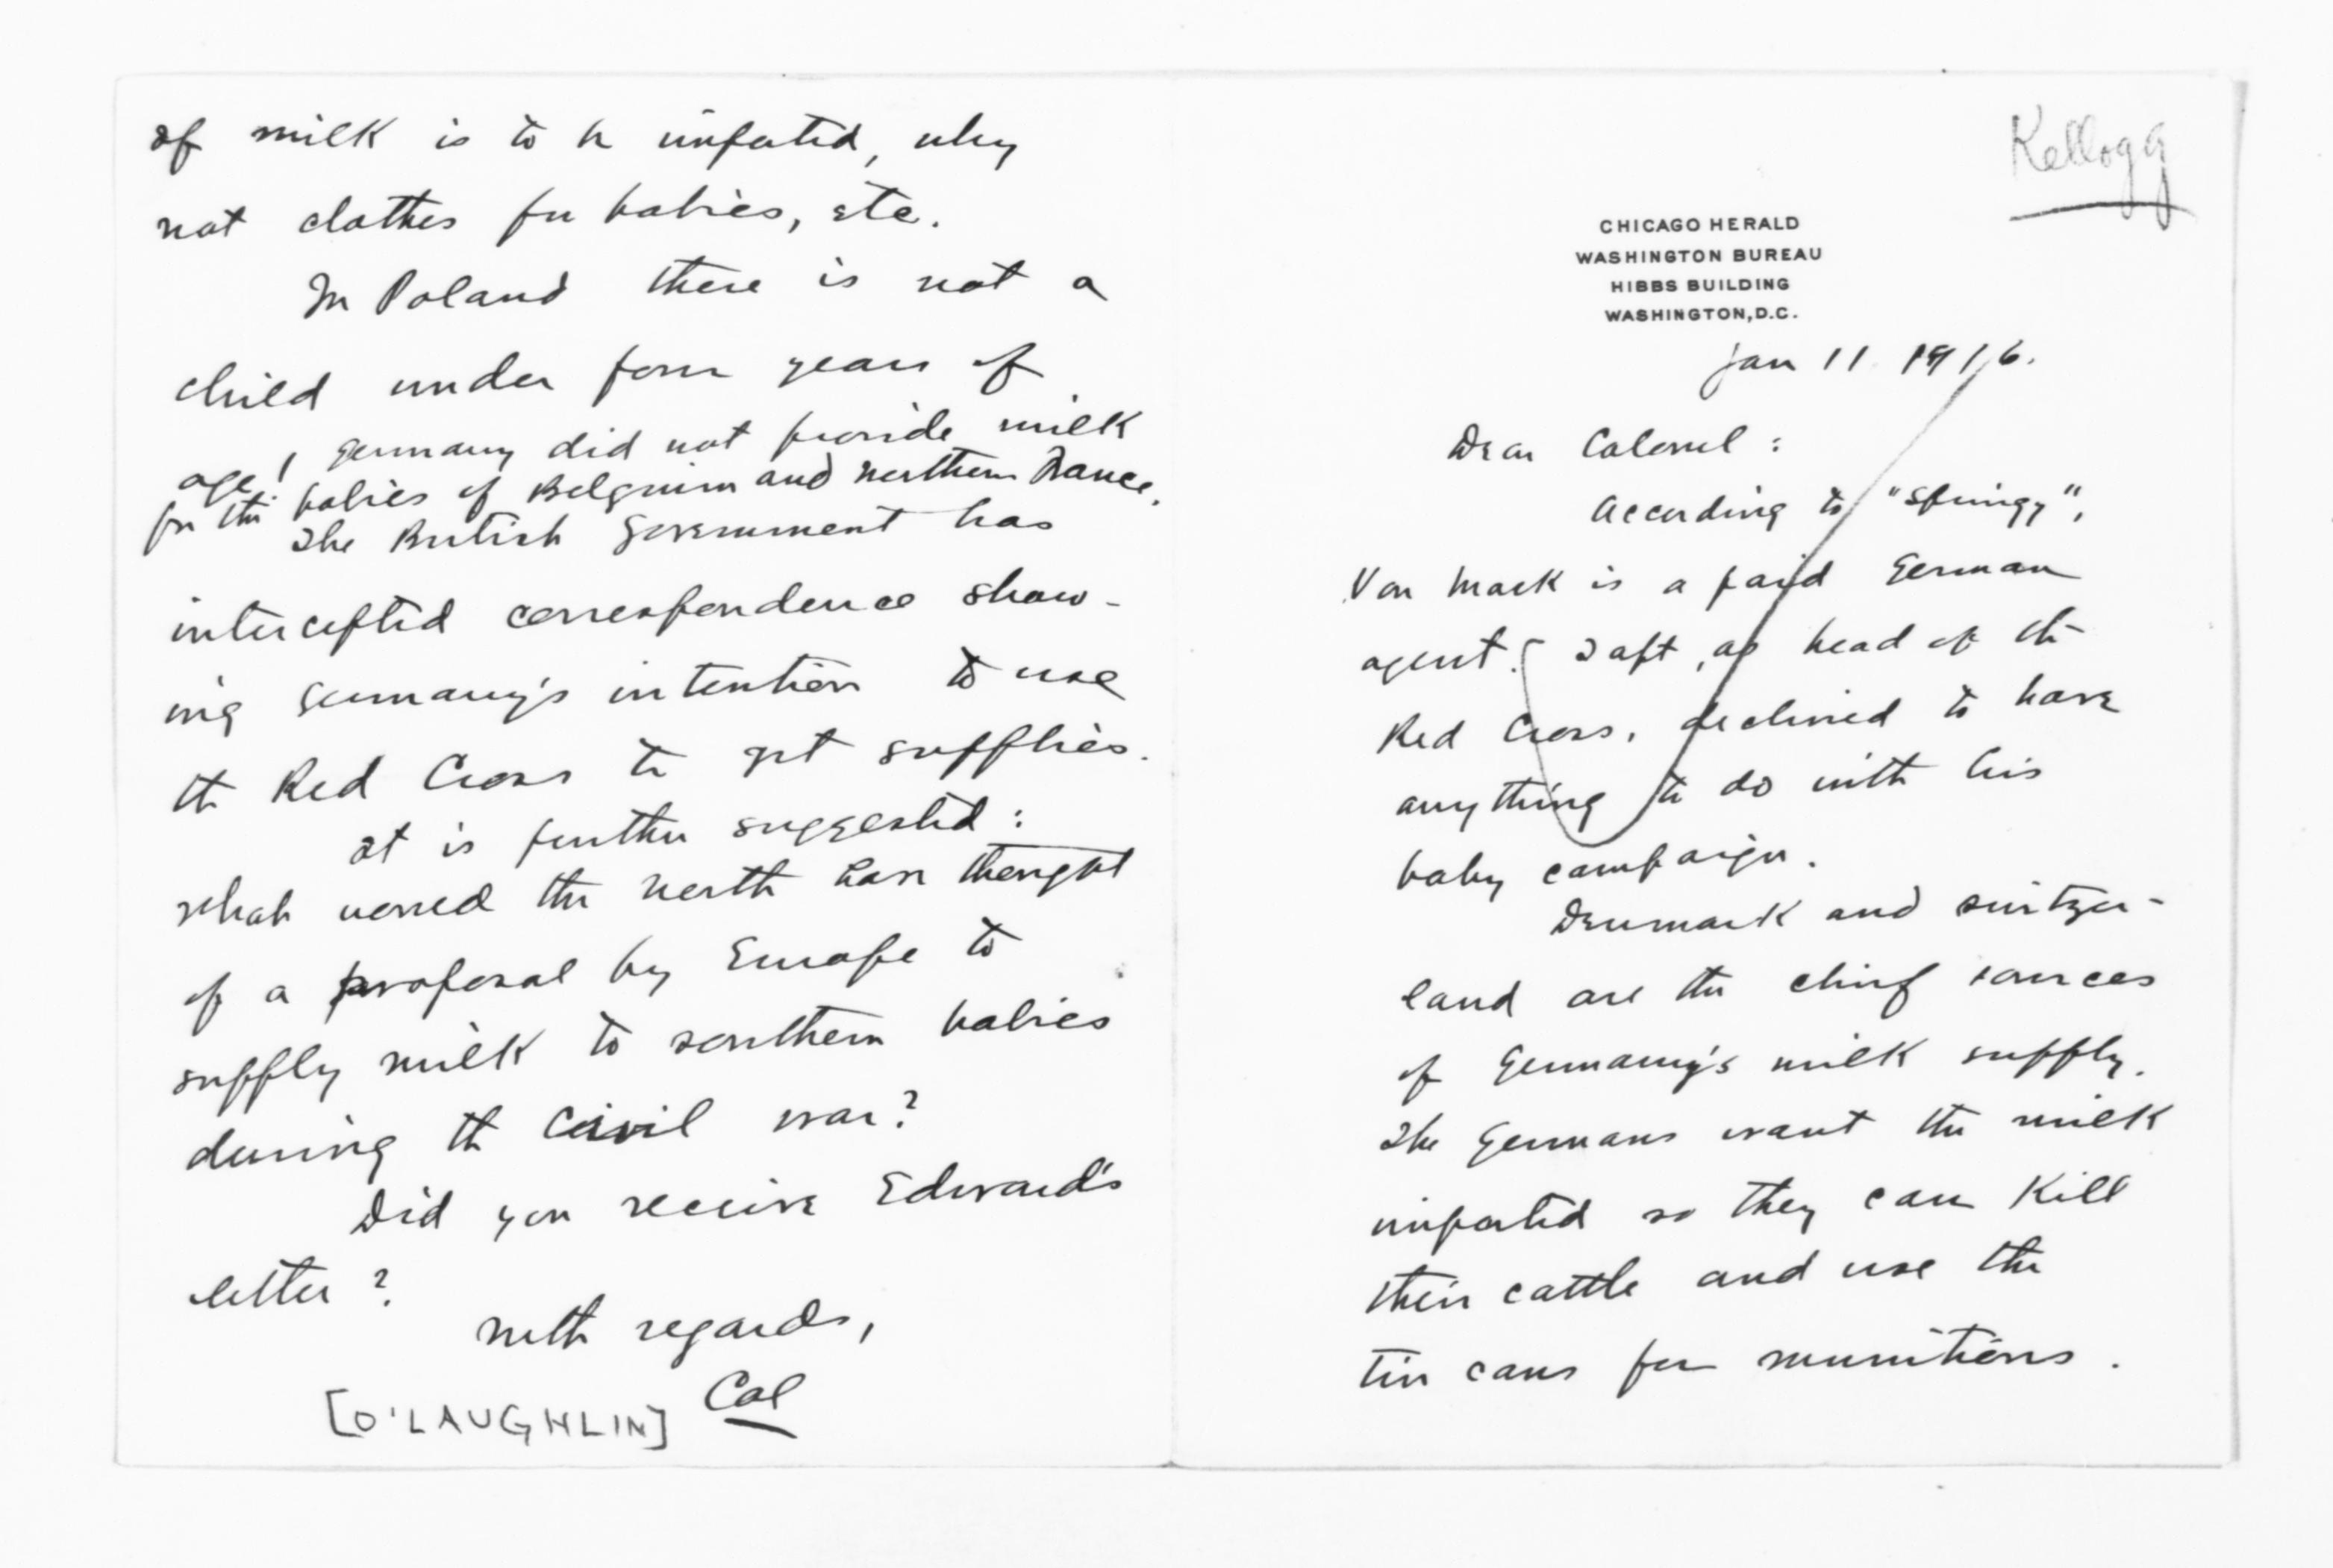 Kellogg
CHICAGO HERALD
WASHINGTON BUREAU
HIBBS BUILDING
WASHINGTON, D.C.
Jan 11 1916.
Dear Colonel:
According to "Springy",
Von Mack is a paid German
agent. Taft, as head of the
Red Cross, declined to have
anything to do with his
baby campaign.
Denmark and Switzer-
land are the chief sources
of Germany's milk supply.
The Germans want the milk
imported so they can kill
their cattle and use the
tin cans for munitions.
of milk is to be imported, why
not clothes for babies, etc.
In Poland there is not a
child under four years of
age! Germany did not provide milk
for the babies of Belgium and northern France.
The British Government has
intercepted correspondence show-
ing Germany's intention to use
the Red Cross to get supplies.
It is further suggested:
what would the North have thought
of a proposal by Europe to
supply milk to southern babies
during the Civil war?
Did you receive Edward's
letter?
With regards,
Cal
[O'LAUGHLIN]